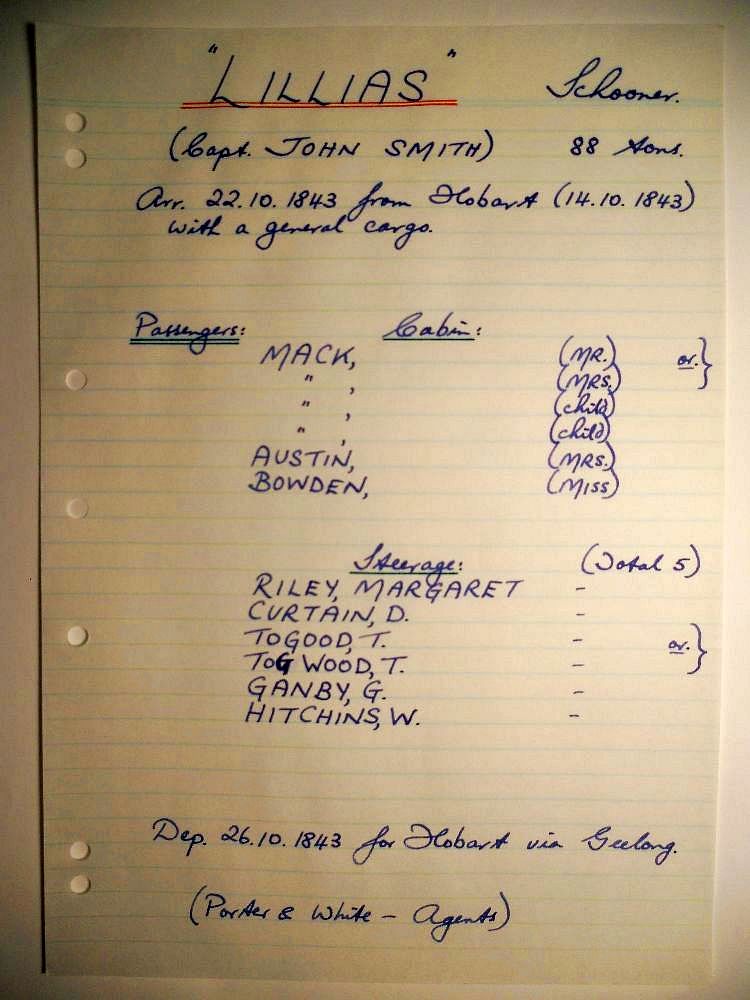 "LILLIAS" Schooner.
(Capt. JOHN SMITH) 88 tons.
Arr. 22.10.1843 from Hobart (14.10.1843)
with a general cargo.
Passengers: Cabin:
MACK, (MR.) or. }
" , (MRS.)
" , (child)
" , (child)
AUSTIN, (MRS.)
BOWDEN, (MISS)
Steerage: (Total 5)
RILEY, MARGARET -
CURTAIN, D. -
TOGOOD, T. - or. }
TOGWOOD, T. -
GANBY, G. -
HITCHINS, W. -
Dep. 26.10.1843 for Hobart via Geelong.
(Porter & White - Agents)